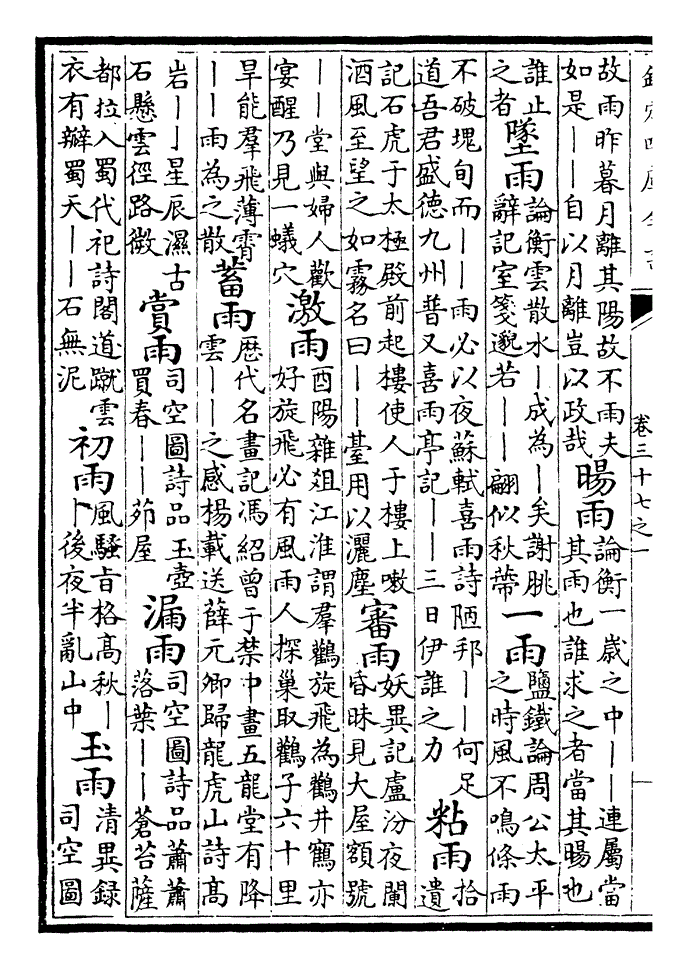 欽定四庫全書
卷三十七之一
故雨昨暮月離其陽故不雨夫
如是||自以月離豈以政哉
暘雨
論衡一歲之中||連屬當
其雨也誰求之者當其暘也
誰止
之者
墜雨
論衡雲散水|成為|矣謝朓
辭記室箋邈若||翩似秋蔕
一雨
鹽鐵論周公太平
之時風不鳴條雨
不破塊旬而||雨必以夜蘇軾喜雨詩陋邦||何足
道吾君盛德九州普又喜雨亭記||三日伊誰之力
粘雨
拾
遺
記石虎于太極殿前起樓使人于樓上嗽
酒風至望之如霧名曰||臺用以灑塵
審雨
妖異記盧汾夜闌
昏昧見大屋額號
||堂與婦人歡
宴醒乃見一蟻穴
激雨
酉陽雜俎江淮謂羣鸛旋飛為鸛井鶴亦
好旋飛必有風雨人探巢取鸛子六十里
旱能羣飛薄霄
||雨為之散
蓄雨
歷代名畫記馮紹曾于禁中畫五龍堂有降
雲||之感楊載送薛元卿歸龍虎山詩高
岩||星辰濕古
石懸雲徑路微
賞雨
司空圖詩品玉壺
買春||茆屋
漏雨
司空圖詩品蕭蕭
落葉||蒼苔薩
都拉入蜀代祀詩閣道蹴雲
衣有辦蜀天||石無泥
初雨
風騷旨格高秋|
|後夜半亂山中
玉雨
清異録
司空圖